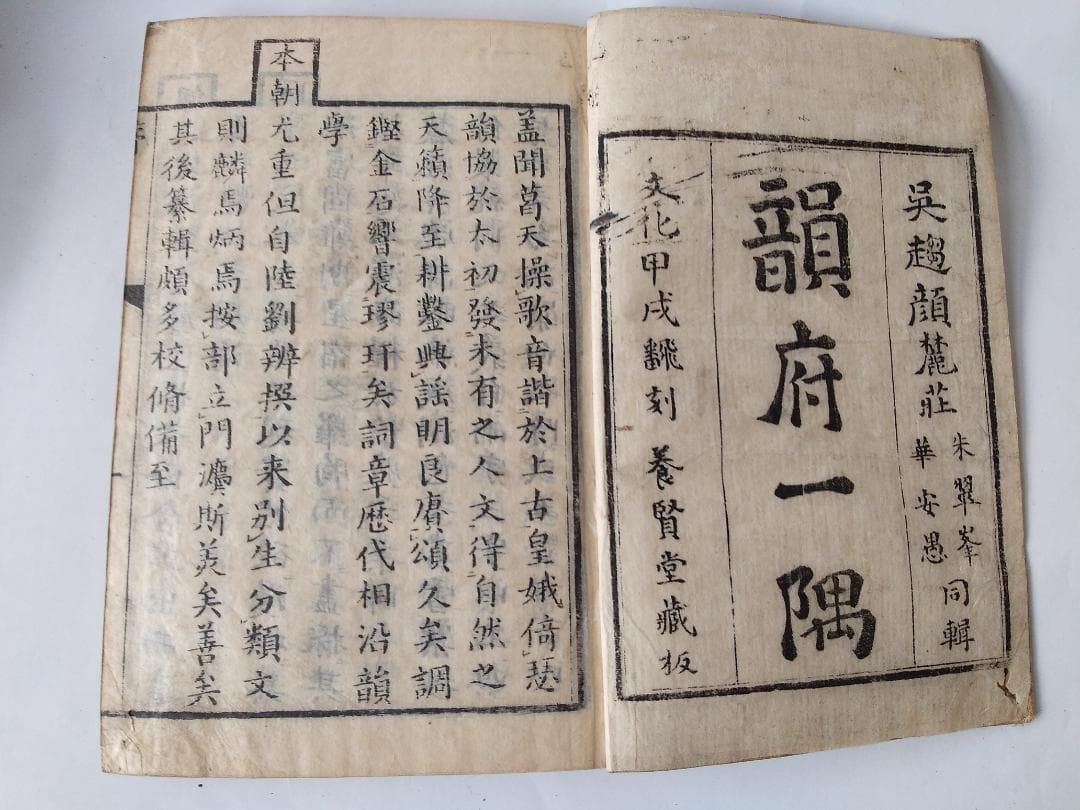 吳趨顔麓莊 朱翠峯 華安愚 同輯
韻府一隅
文化甲戌飜刻 養賢堂藏板
盖聞葛天操歌音諧於上古皇娥倚瑟
韻協於太初發未有之人文得自然之
天籟降至耕鑿興謡明良賡頌久矣調
鏗金石響震璆玕矣詞章歴代相沿韻
學
本朝尤重但自陸劉辨撰以来別生分類文
則麟焉炳焉按部立門斯美矣善矣
其後纂輯頗多校脩備至